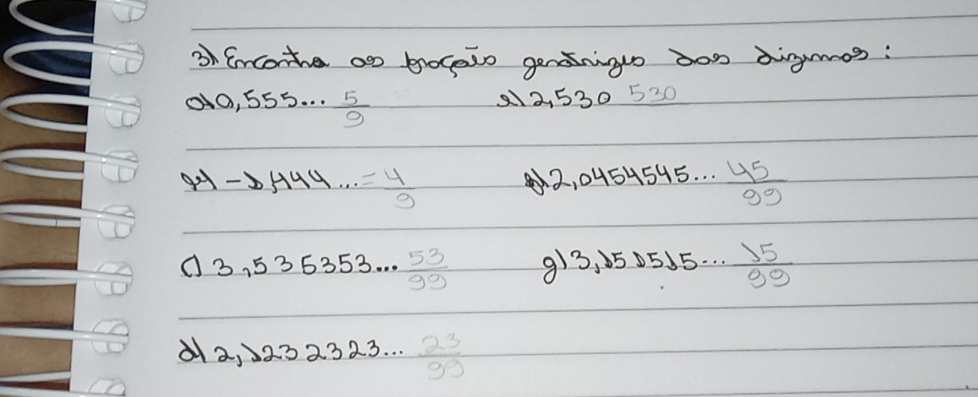 3) Encontre as fração geratrizes das dizimas:
a) 0,555... 5/9 e) 2,530 530
b) -1,444... = 4/9 f) 2,0454545... 45/99
c) 3,535353... 53/99 g) 3,151515... 15/99
d) 2,1232323... 23/99